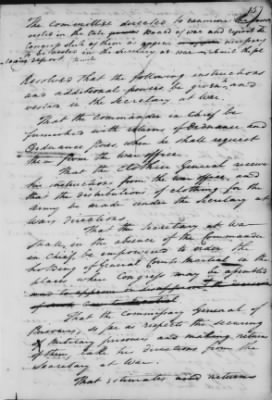 157
The committee directed to examine the powers
vested in the late Board of war and report to
Congress such of them as appear necessary
to be vested in the Secretary at war
report
Resolved that the following instructions
and additional powers be given and
vested in the Secretary at war.
That the commander in chief be
furnished with returns of Ordnance and
Ordnance stores, when he shall request
them from the war office.
That the Clothier General receive
his instructions from the war office, and
that the distributions of clothing for the
army be made under the Secretary at
Wars directions.
That the Secretary at war
shall, in the absence of the Commander
in chief, be impowered to order the
holding of General Courts Martial in the
places where Congress may
That the commissary General of
Prisoners, so far as respects the securing
of Military prisoners and making returns
of them, take his directions from the
Secretary at War.
That estimates and returns